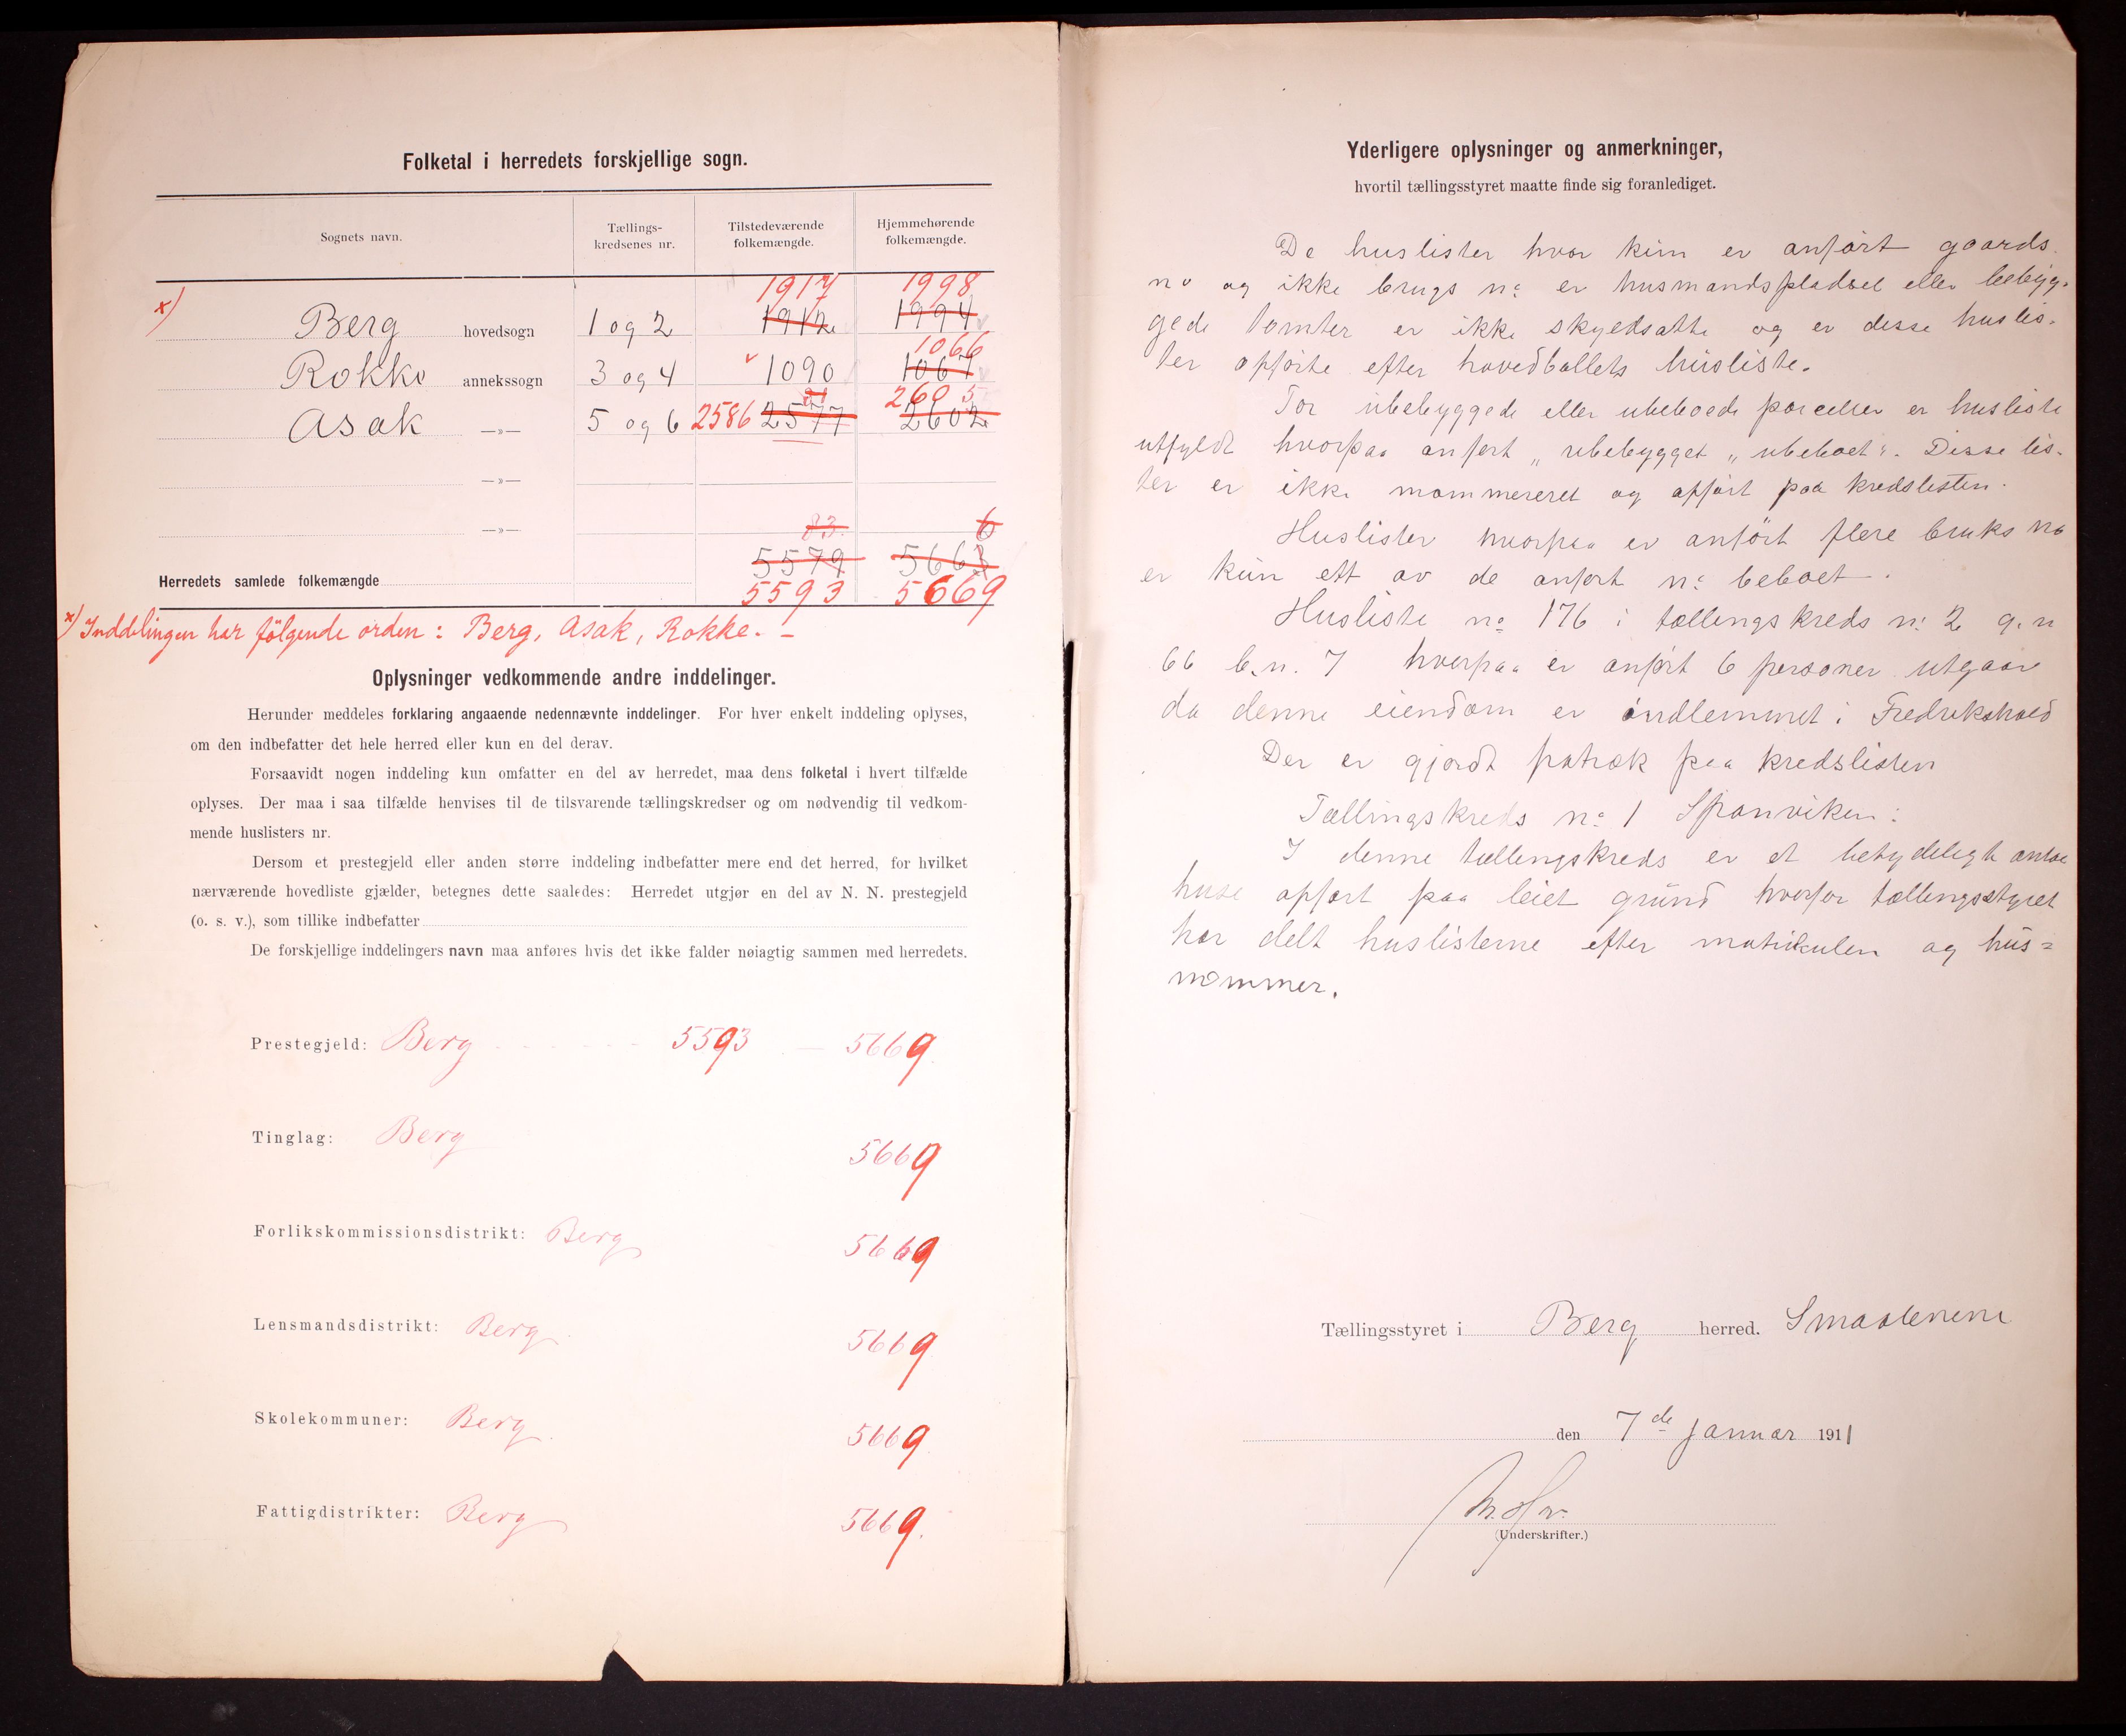 Folketal i herredets forskjellige sogn.
Sognets navn.
Tællings-
kredsenes nr.
Tilstedeværende
folkemængde.
Hjemmehørende
folkemængde.
1917 1998
x) Berg hovedsogn 1 og 2 1912 1994
1066
Rokke annekssogn 3 og 4 1090 1067
2605
Asak —»— 5 og 6 2586 2577 2602
—»—
83 6
—»—
5579 5663
Herredets samlede folkemængde
5593 5669
x) Inddelingen har følgende orden: Berg, Asak, Rokke. –
Oplysninger vedkommende andre inddelinger.
Herunder meddeles forklaring angaaende nedennævnte inddelinger. For hver enkelt inddeling oplyses,
om den indbefatter det hele herred eller kun en del derav.
Forsaavidt nogen inddeling kun omfatter en del av herredet, maa dens folketal i hvert tilfælde
oplyses. Der maa i saa tilfælde henvises til de tilsvarende tællingskredser og om nødvendig til vedkom-
mende huslisters nr.
Dersom et prestegjeld eller anden større inddeling indbefatter mere end det herred, for hvilket
nærværende hovedliste gjælder, betegnes dette saaledes: Herredet utgjør en del av N. N. prestegjeld
(o. s. v.), som tillike indbefatter
De forskjellige inddelingers navn maa anføres hvis det ikke falder nøiagtig sammen med herredets.
Prestegjeld: Berg 5593 – 5669
Tinglag: Berg 5669
Forlikskommissionsdistrikt: Berg 5669
Lensmandsdistrikt: Berg 5669
Skolekommuner: Berg 5669
Fattigdistrikter: Berg 5669.
Yderligere oplysninger og anmerkninger,
hvortil tællingsstyret maatte finde sig foranlediget.
De huslister hvor kun er anført gaards
no og ikke brugs no er husmandspladser eller bebyg-
gede tomter er ikke skyldsatte og er disse huslis-
ter opførte efter hovedbøllets husliste.
For ubebyggede eller ubeboede parceller er husliste
utfyldt hvorpaa anført „ ubebygget „ ubeboet". Disse lis-
ter er ikke nommereret og opført paa kredslisten.
Huslister hvorpaa er anført flere bruks no
er kun ett av de anført no beboet.
Husliste no 176 i tællingskreds no 2 g.n
66 b.n. 7 hvorpaa er anført 6 personer utgaar
da denne eiendom er indlemmet i Fredrikshald
Der er gjordt fratræk paa kredslisten
Tællingskreds no 1 Sponviken:
I denne tællingskreds er et betydeligt antal
huse opført paa leiet grund hvorfor tællingsstyret
har delt huslisterne efter matrikulen og hus=
nommer.
Tællingsstyret i Berg herred. Smaalenene
den 7de Januar 1911
(Underskrifter.)